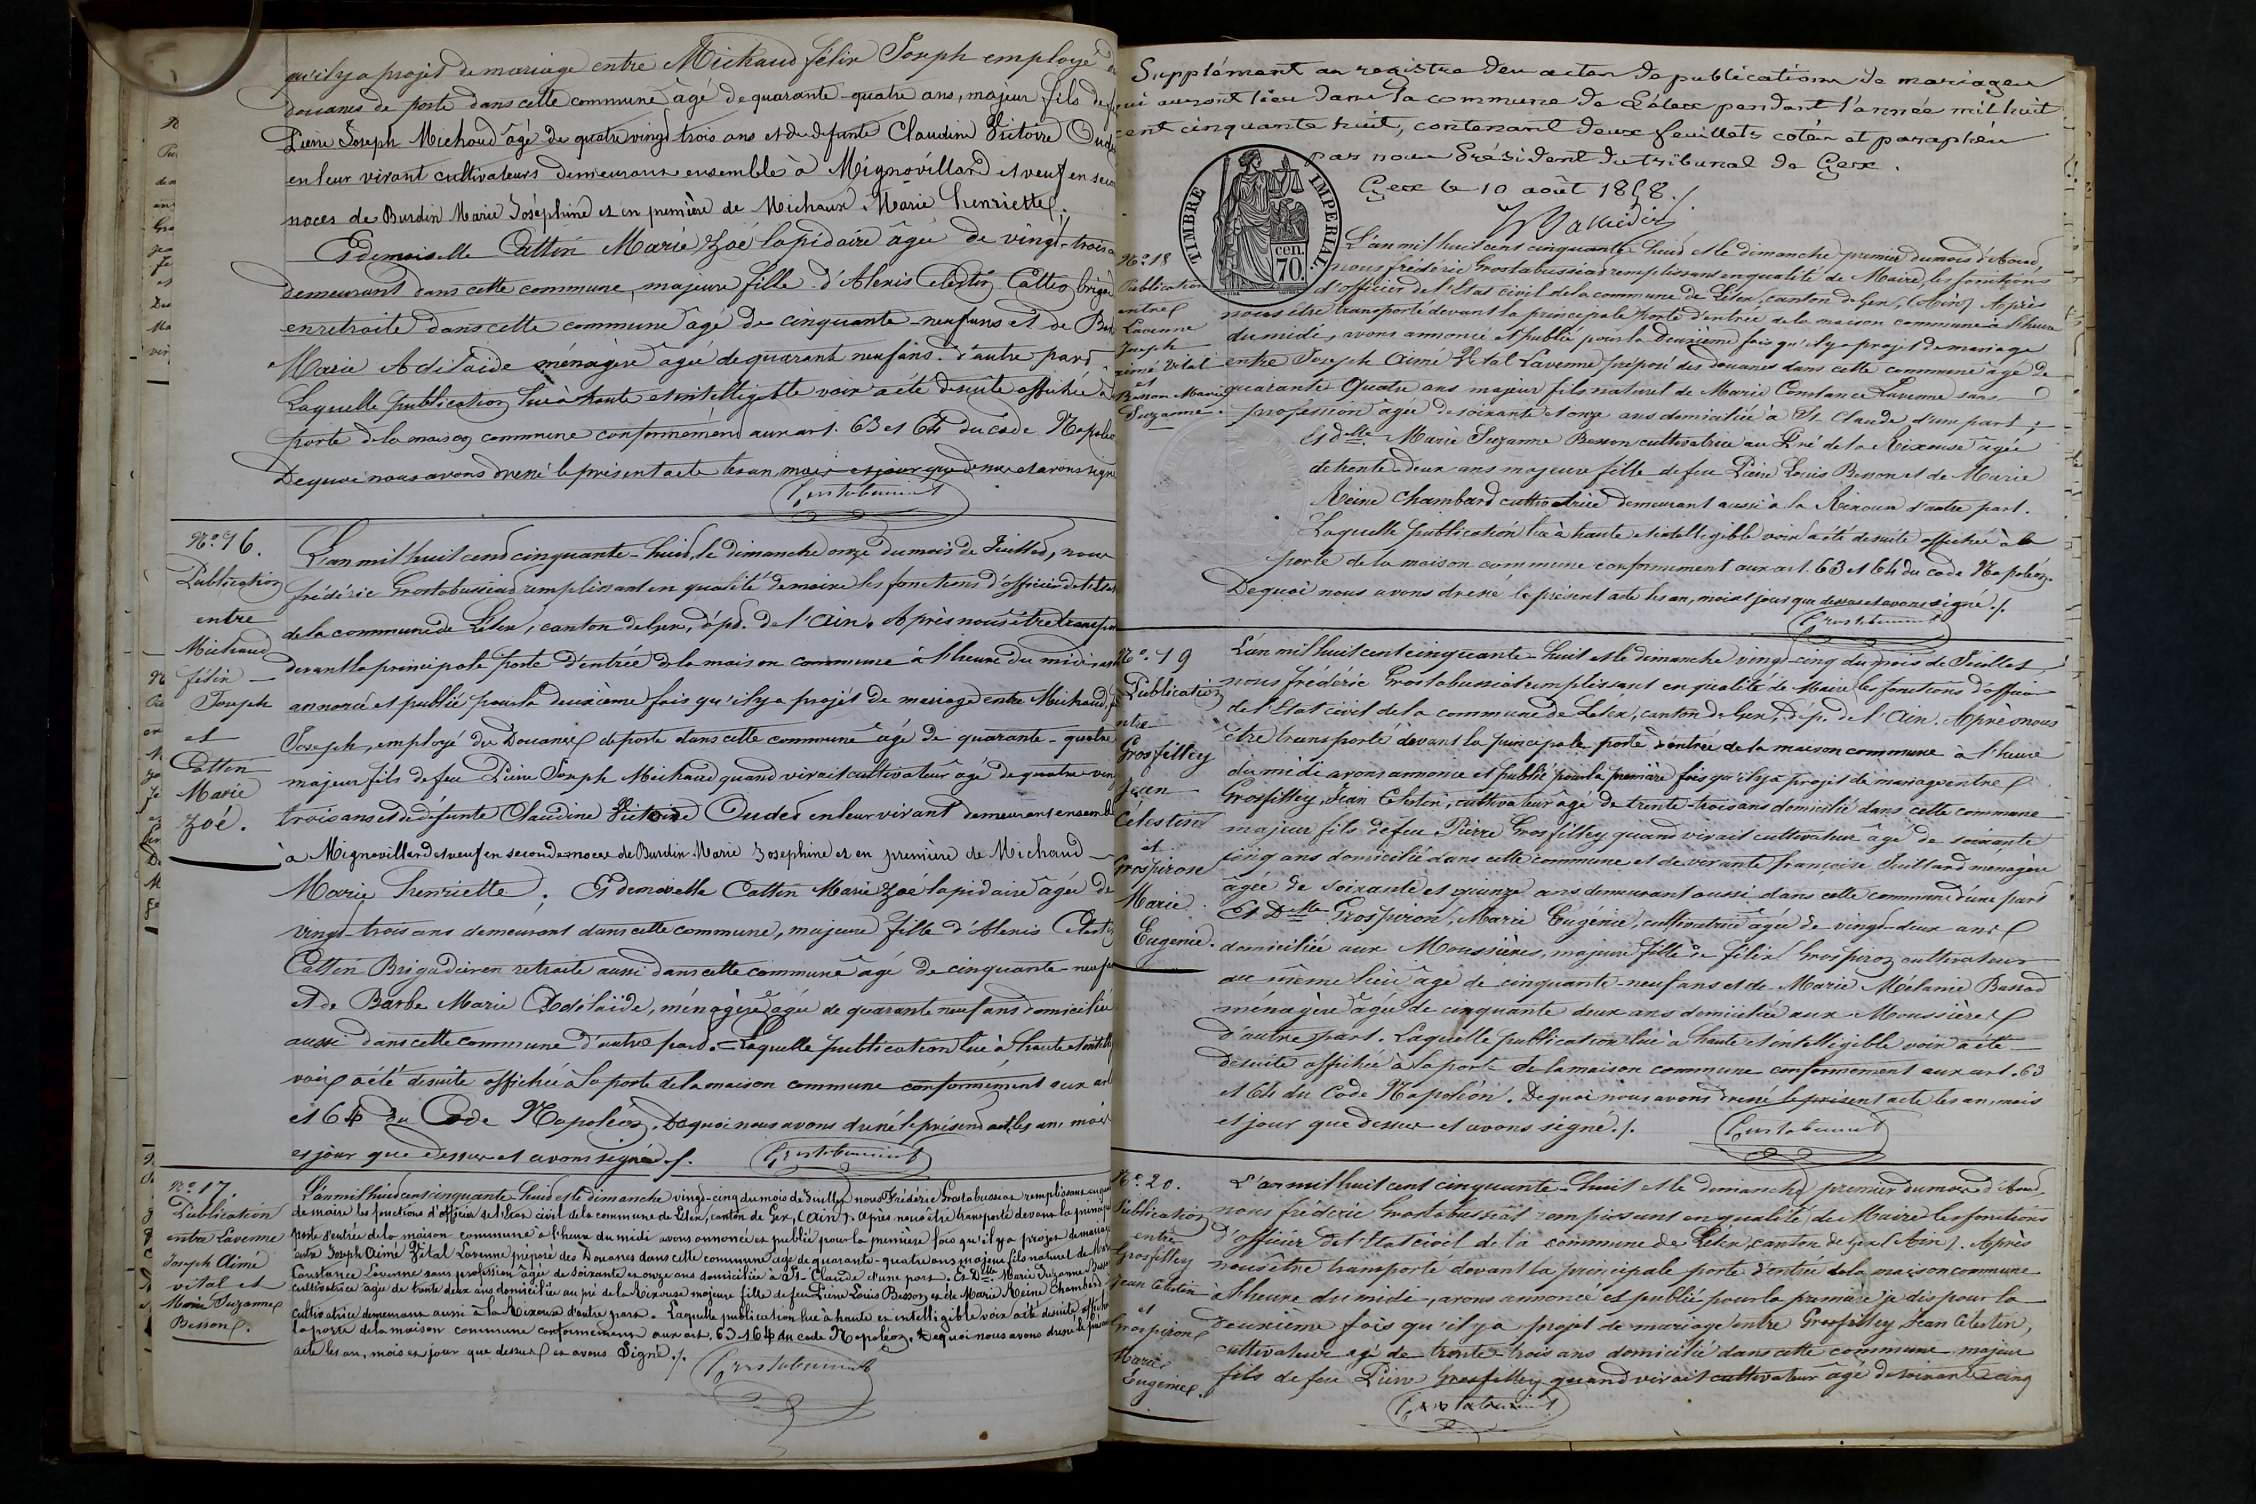 qu'il y a projet de mariage entre Michaud félix Joseph employé
douanes de poste dans cette commune âgé de quarante-quatre ans, majeur fils de
Pierre Joseph Michaud âgé de quatre vingt trois ans et de défunte Claudine Victoire
en leur vivant cultivateurs demeurans ensemble à Mignovillard et veuf en
noces de Burdin Marie Joséphine et en première de Michaux Marie henriette.
Et demoiselle Cattin Marie Zoé lapidaire âgée de vingt-trois
demeurant dans cette commune, majeure fille d'Alexis Célestin Cattin
en retraite dans cette commune âgé de cinquante-neuf ans et de
Marie Adélaïde ménagère âgée de quarante neuf ans. d'autre part
Laquelle publication lue à haute et intelligible voix a été de suite affichée à
porte de la maison commune conformément aux art. 63 et 64 du code
De quoi nous avons dressé le présent acte les an, mois et jour que dessus et avons signé
No. 16.
Publication
entre
Michaud
félix
Joseph
et
Cattin
Marie
Zoé.
L'an mil huit cent cinquante-huit, le dimanche onze du mois de Juillet, nous
frédéric Grostabussiat remplissant en qualité de maire les fonctions d'officier de
de la commune de Lélex, canton de Gex, dép. de l'Ain. Après nous être
devant la principale porte d'entrée de la maison commune à l'heure du midi
annoncé et publié pour la deuxième fois qu'il y a projet de mariage entre Michaud,
Joseph, employé des Douanes de poste dans cette commune âgé de quarante-quatre
majeur fils de feu Pierre Joseph Michaud quand vivait cultivateur âgé de quatre
trois ans et de défunte Claudine Victoire Oudet en leur vivant demeurant
à Mignovillard et veuf en seconde noces de Burdin Marie Josephine et en première de Michaud
Marie henriette. Et demoiselle Cattin Marie Zoé lapidaire âgée de
vingt-trois ans demeurant dans cette commune, majeure fille d'Alexis
Cattin Brigadier en retraite aussi dans cette commune âgé de cinquante-neuf
et de Barbe Marie Adélaïde, ménagère âgée de quarante neuf ans domiciliée
aussi dans cette commune d'autre part. = Laquelle publication lue à haute et
voix a été de suite affichée à la porte de la maison commune conformément aux
et 64 du Code Napoléon. De quoi nous avons dressé le présent acte les an, mois
et jour que dessus et avons signé./.
No. 17
Publication
entre Lavenne
Joseph Aimé
vital et
Marie Suzanne
Besson.
L'an mil huit cent cinquante-huit et le dimanche vingt-cinq du mois de Juillet nous Frédéric Grostabussiat remplissant
de maire les fonctions d'officier de l'Etat civil de la commune de Lélex, canton de Gex, (Ain). Après nous être transporté devant la
porte d'entrée de la maison commune à l'heure du midi avons annoncé et publié pour la première fois qu'il y a projet de
entre Joseph Aimé Vital Lavenne préposé des Douanes dans cette commune âgé de quarante-quatre ans majeur fils naturel de
Constance Lavenne sans profession âgée de soixante et onze ans domiciliée à St-Claude d'une part. Et Dlle Marie Suzanne
cultivatrice âgée de trente deux ans domiciliée au pré de la Rixouse majeure fille de feu Pierre Louis Besson et de Marie Reine Chambard
cultivatrice demeurant aussi à la Rixouse d'autre part. Laquelle publication lue à haute et intelligible voix a été de suite
la porte de la maison commune conformément aux art. 63 et 64 du code Napoléon. De quoi nous avons dressé le
acte les an, mois et jour que dessus et avons Signé./.
Supplément au registre des actes de publications de mariages
qui auront lieu dans la commune de Lélex pendant l'année mil huit
cent cinquante huit, contenant deux feuillets cotés et paraphés
par nous Président du tribunal de Gex.
Gex le 10 août 1858./.
TIMBRE IMPERIAL.
cen. 70.
No. 18
Publication
entre
Lavenne
Joseph
aimé Vital
et
Besson Marie
Suzanne.
L'an mil huit cent cinquante-huit et le dimanche premier du mois d'Aout,
nous frédéric Grostabussiat remplissant en qualité de Maire, les fonctions
d'officier de l'Etat civil de la commune de Lélex, canton de Gex, (Ain) Après
nous être transporté devant la principale Porte d'entrée de la maison commune à l'heure
du midi, avons annoncé et publié pour la deuxième fois qu'il y a projet de mariage
entre Joseph Aimé Vital Lavenne préposé des douanes dans cette commune âgé de
quarante Quatre ans majeur fils naturel de Marie Constance Lavenne sans
profession âgée de soixante et onze ans domiciliée à St. Claude d'une part;
Et dlle Marie Suzanne Besson cultivatrice au Pré de la Rixouse âgée
de trente-deux ans majeure fille de feu Pierre Louis Besson et de Marie
Reine Chambard cultivatrice demeurant aussi à la Rixouse d'autre part.
Laquelle publication lue à haute et intelligible voix a été de suite affichée à la
porte de la maison commune conformément aux art. 63 et 64 du code Napoléon.
De quoi nous avons dressé le présent acte les an, mois et jour que dessus et avons signé./.
No. 19
Publication
entre
Grosfilley
Jean
Célestin
et
Grospirose
Marie
Eugénie.
L'an mil huit cent cinquante-huit et le dimanche vingt-cinq du mois de Juillet
nous frédéric Grostabussiat remplissant en qualité de Maire les fonctions d'officier
de l'Etat civil de la commune de Lelex, canton de Gex, dép. de l'Ain. Après nous
être transporté devant la principale porte d'entrée de la maison commune à l'heure
du midi avons annoncé et publié pour la première fois qu'il y a projet de mariage entre
Grosfilley, Jean Célestin, cultivateur âgé de trente-trois ans domicilié dans cette commune
majeur fils de feu Pierre Grosfilley quand vivait cultivateur âgé de soixante
cinq ans domicilié dans cette commune et de vivante françoise Juillard ménagère
âgée de soixante et quinze ans demeurant aussi dans cette commune d'une part
Et Dlle Grospiron, Marie Eugénie, cultivatrice âgée de vingt-deux ans
domiciliée aux Moussières, majeure fille de félix Grospiron cultivateur
au même lieu âgé de cinquante-neuf ans et de Marie Mélanie
ménagère âgée de cinquante deux ans domiciliée aux Moussières
d'autre part. Laquelle publication lue à haute et intelligible voix a été
de suite affichée à la porte de la maison commune conformément aux art. 63
et 64 du Code Napoléon. De quoi nous avons dressé le présent acte les an, mois
et jour que dessus et avons signé./.
No. 20.
Publication
entre
Grosfilley
Jean Célestin
et
Grospiron
Marie
Eugénie.
L'an mil huit cent cinquante-huit et le dimanche premier du mois d'Aout,
nous frédéric Grostabussiat remplissant en qualité de Maire les fonctions
d'officier de l'Etat civil de la commune de Lélex, canton de Gex (Ain). Après
nous être transporté devant la principale porte d'entrée de la maison commune
à l'heure du midi, avons annoncé et publié pour la première je dis pour la
deuxième fois qu'il y a projet de mariage entre Grosfilley Jean Célestin,
cultivateur agé de trente-trois ans domicilié dans cette commune majeur
fils de feu Pierre Grosfilley quand vivait cultivateur âgé de soixante cinq